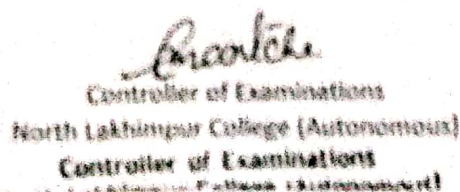 Controller of Examinations
North Lakhimpur College (Autonomous)
Controller of Examinations
College (Autonomous)